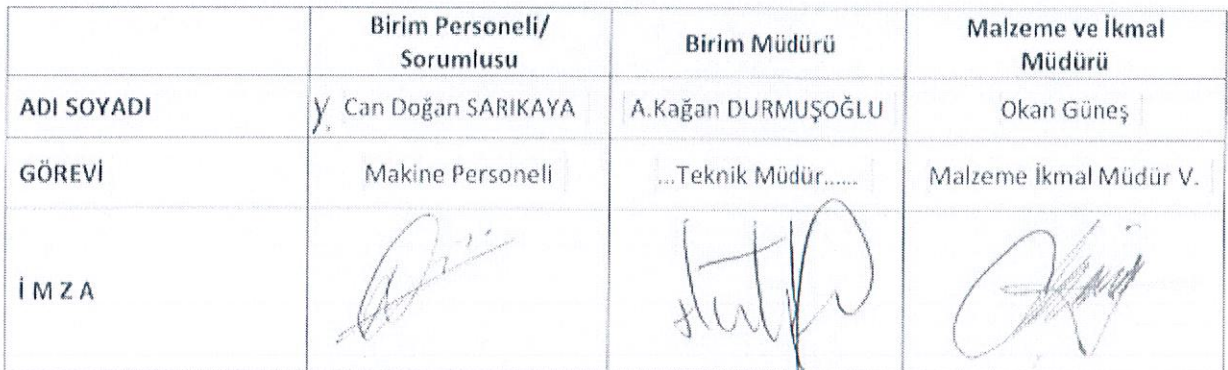 Birim Personeli/
Sorumlusu
Birim Müdürü
Malzeme ve İkmal
Müdürü
ADI SOYADI
y. Can Doğan SARIKAYA
A.Kağan DURMUŞOĞLU
Okan Güneş
GÖREVİ
Makine Personeli
...Teknik Müdür......
Malzeme İkmal Müdür V.
İ M Z A